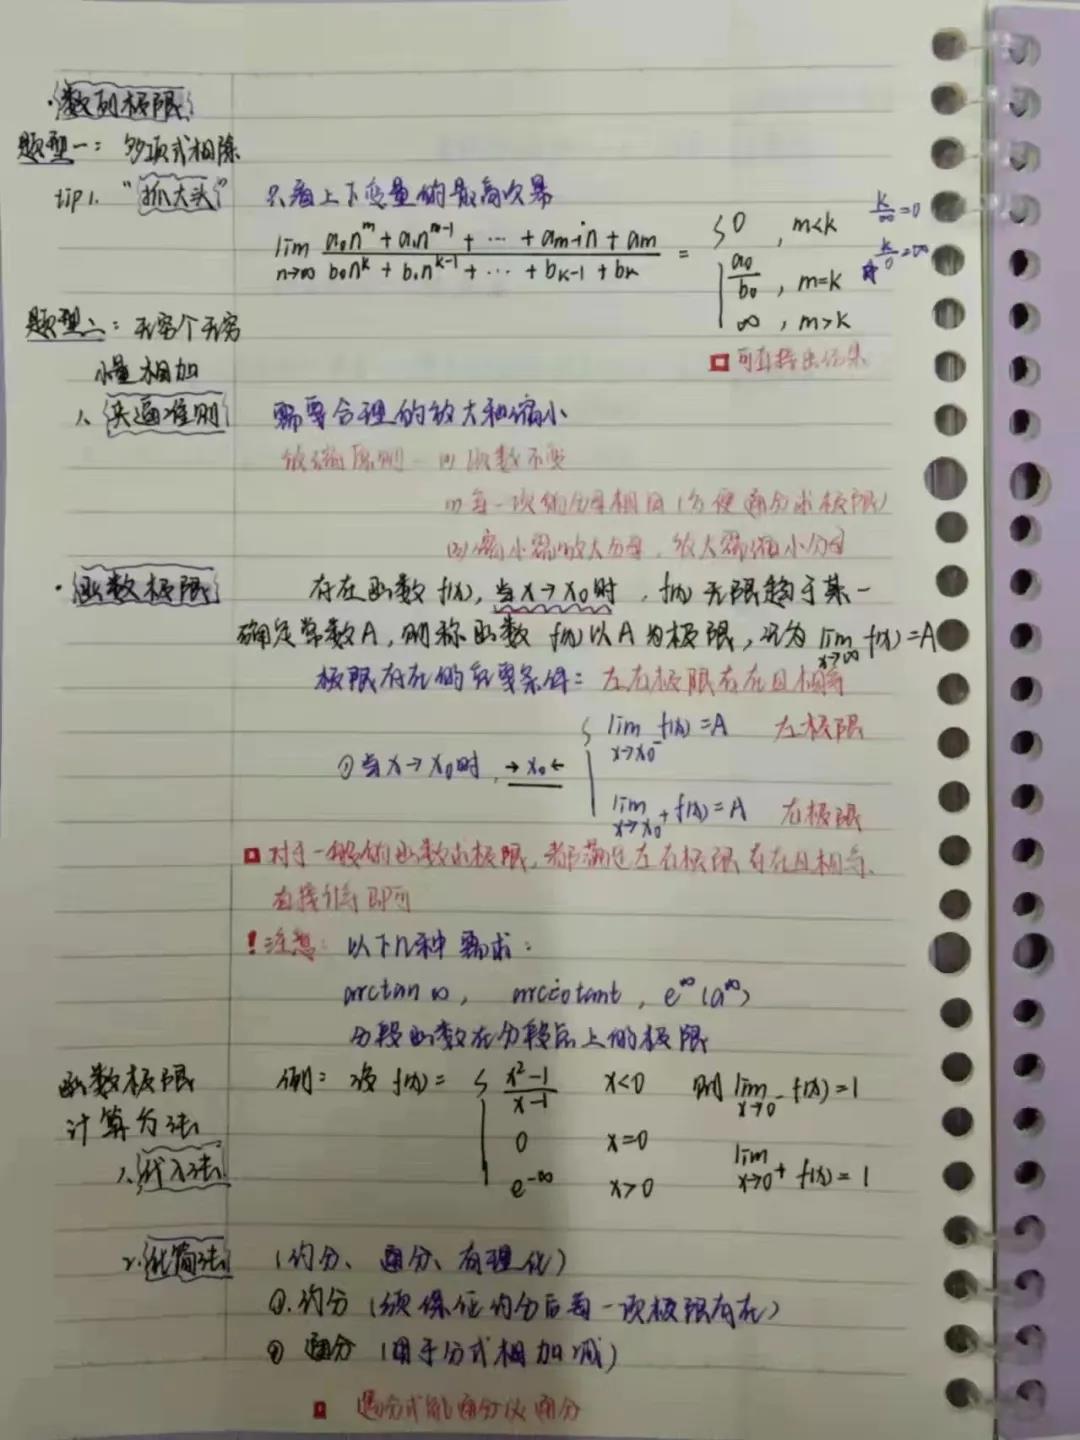 ·数列极限
题型一：多项式相除
tip1.“抓大头” 只看上下变量的最高次幂
lim n→∞ (a₀n^m + a₁n^(m-1) + ··· + a_(m-1)n + a_m) / (b₀n^k + b₁n^(k-1) + ··· + b_(k-1) + b_k) = { 0 , m<k
a₀/b₀ , m=k
∞ , m>k
k/∞=0
k/0=∞
题型二：无穷个无穷
小量相加
可直接出结果
1.夹逼准则 需要合理的放大和缩小
放缩原则 (1)次数不变
(2)每一项的分母相同(方便通分求极限)
(3)缩小需放大分母，放大需缩小分母
·函数极限 存在函数 f(x), 当 x→x₀时，f(x) 无限趋于某一
确定常数A，则称函数 f(x) 以 A 为极限，记为 lim x→∞ f(x)=A
极限存在的充要条件：左右极限存在且相等
①当 x→x₀时，→x₀← { lim x→x₀⁻ f(x)=A 左极限
lim x→x₀⁺ f(x)=A 右极限
对于一般的函数求极限，都满足左右极限存在且相等，
直接 即可
!注意：以下几种需求：
arctan∞， arccotant， e^∞(a^∞)
分段函数在分段点上的极限
函数极限
计算方法
例：设 f(x)= { (x²-1)/(x-1) x<0 则 lim x→0⁻ f(x)=1
0 x=0
e^-∞ x>0 lim x→0⁺ f(x)=1
1.代入法
2.化简法 (约分、通分、有理化)
①.约分(须保证约分后每一项极限存在)
② 通分(用于分式相加减)
遇分式能通分仅通分